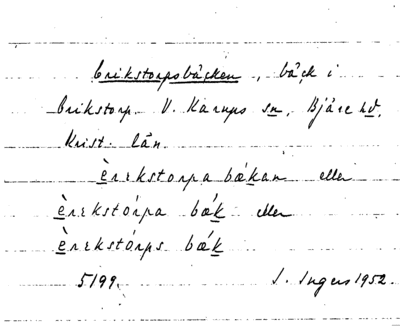 Erikstorpsbäcken, bäck i
Erikstorp. V. Karups sn, Bjäre hd,
Krist. län.
èrekstorpa bækan eller
èrekstórpa bǽk eller
èrekstórps bǽk
5199. I. Ingers 1952.